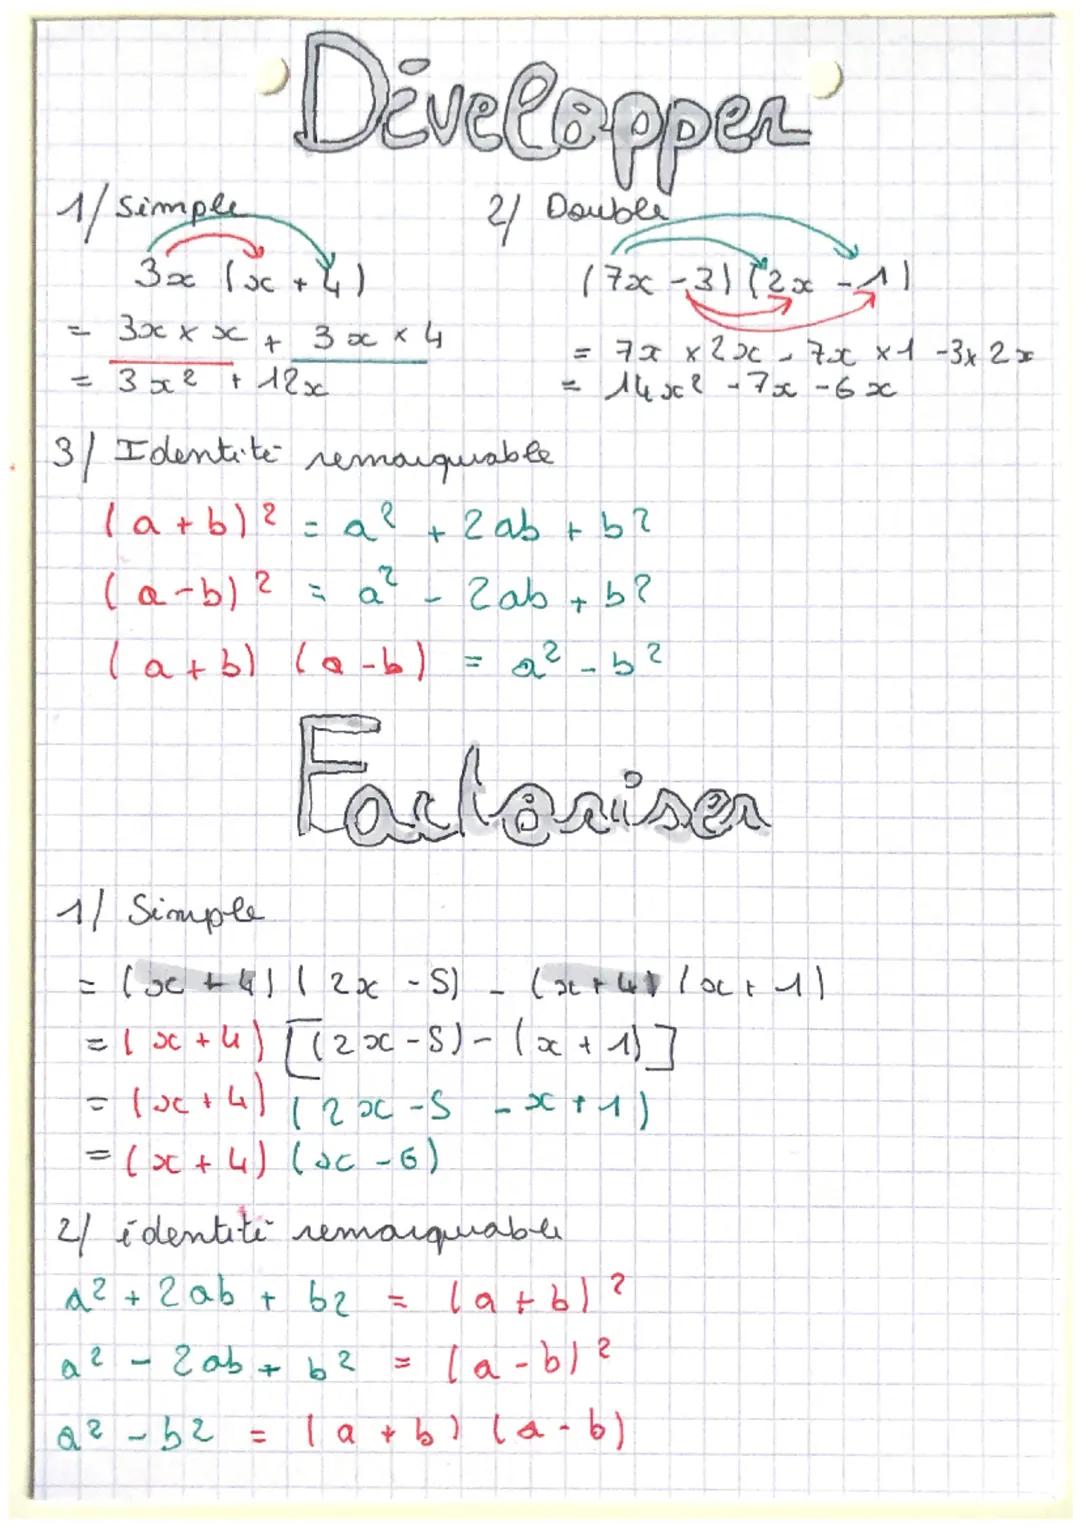 Développer
1/ Simple
3x (x + 4)
= 3x × x + 3x × 4
= 3x² + 12x
2/ Double
(7x - 3) (2x - 1)
= 7x × 2x - 7x × 1 - 3 × 2x
= 14x² - 7x - 6x
3/ Identité remarquable
(a + b)² = a² + 2ab + b²
(a - b)² = a² - 2ab + b²
(a + b) (a - b) = a² - b²
Factoriser
1/ Simple
= (x + 4) (2x - 5) - (x + 4) (x + 1)
= (x + 4) [(2x - 5) - (x + 1)]
= (x + 4) (2x - 5 - x + 1)
= (x + 4) (x - 6)
2/ identité remarquable
a² + 2ab + b2 = (a + b)²
a² - 2ab + b² = (a - b)²
a² - b² = (a + b) (a - b)